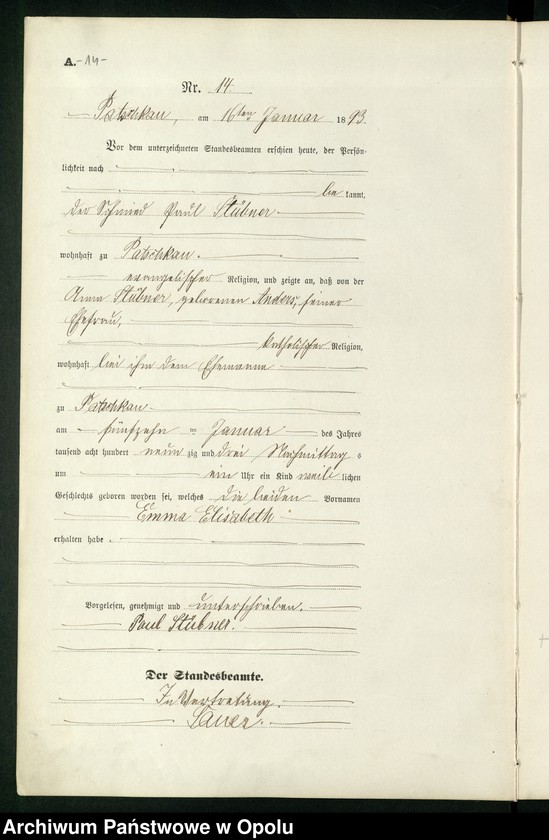 A. -14-
Nr. 14
Patschkau, am 16ten Januar 1893.
Vor dem unterzeichneten Standesbeamten erschien heute, der Persön-
lichkeit nach
be kannt,
der Schmied Paul Stübner
wohnhaft zu Patschkau.
evangelischer Religion, und zeigte an, daß von der
Anna Stübner, geborenen Anders, seiner
Ehefrau,
katholischer Religion,
wohnhaft bei ihm dem Ehemanne
zu Patschkau
am fünfzehn ten Januar des Jahres
tausend acht hundert neun zig und drei Nachmittag s
um ein Uhr ein Kind weib lichen
Geschlechts geboren worden sei, welches die beiden Vornamen
Emma Elisabeth
erhalten habe.
Vorgelesen, genehmigt und unterschrieben.
Paul Stübner.
Der Standesbeamte.
In Vertretung.
Sauer.
Archiwum Państwowe w Opolu